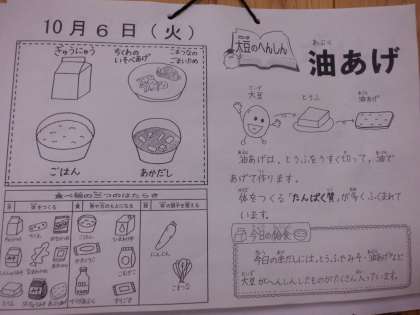 10月6日（火）
ぎゅうにゅう
ちくわの
いそべあげ
こまつなの
ごまいため
ごはん
あかだし
食べ物の三つのはたらき
赤
体をつくる
黄
緑
体の調子を整える
にんじん
こまつな
大豆のへんしん
油あげ
あぶら
だいず
大豆
とうふ
油あげ
油あげは、とうふをうすく切って、油で
あげて作ります。
体をつくる「たんぱく質」が多くふくまれて
います。
今日の給食
今日の赤だしには、とうふやみそ・油あげなど
大豆がへんしんしたものがたくさん入っています。